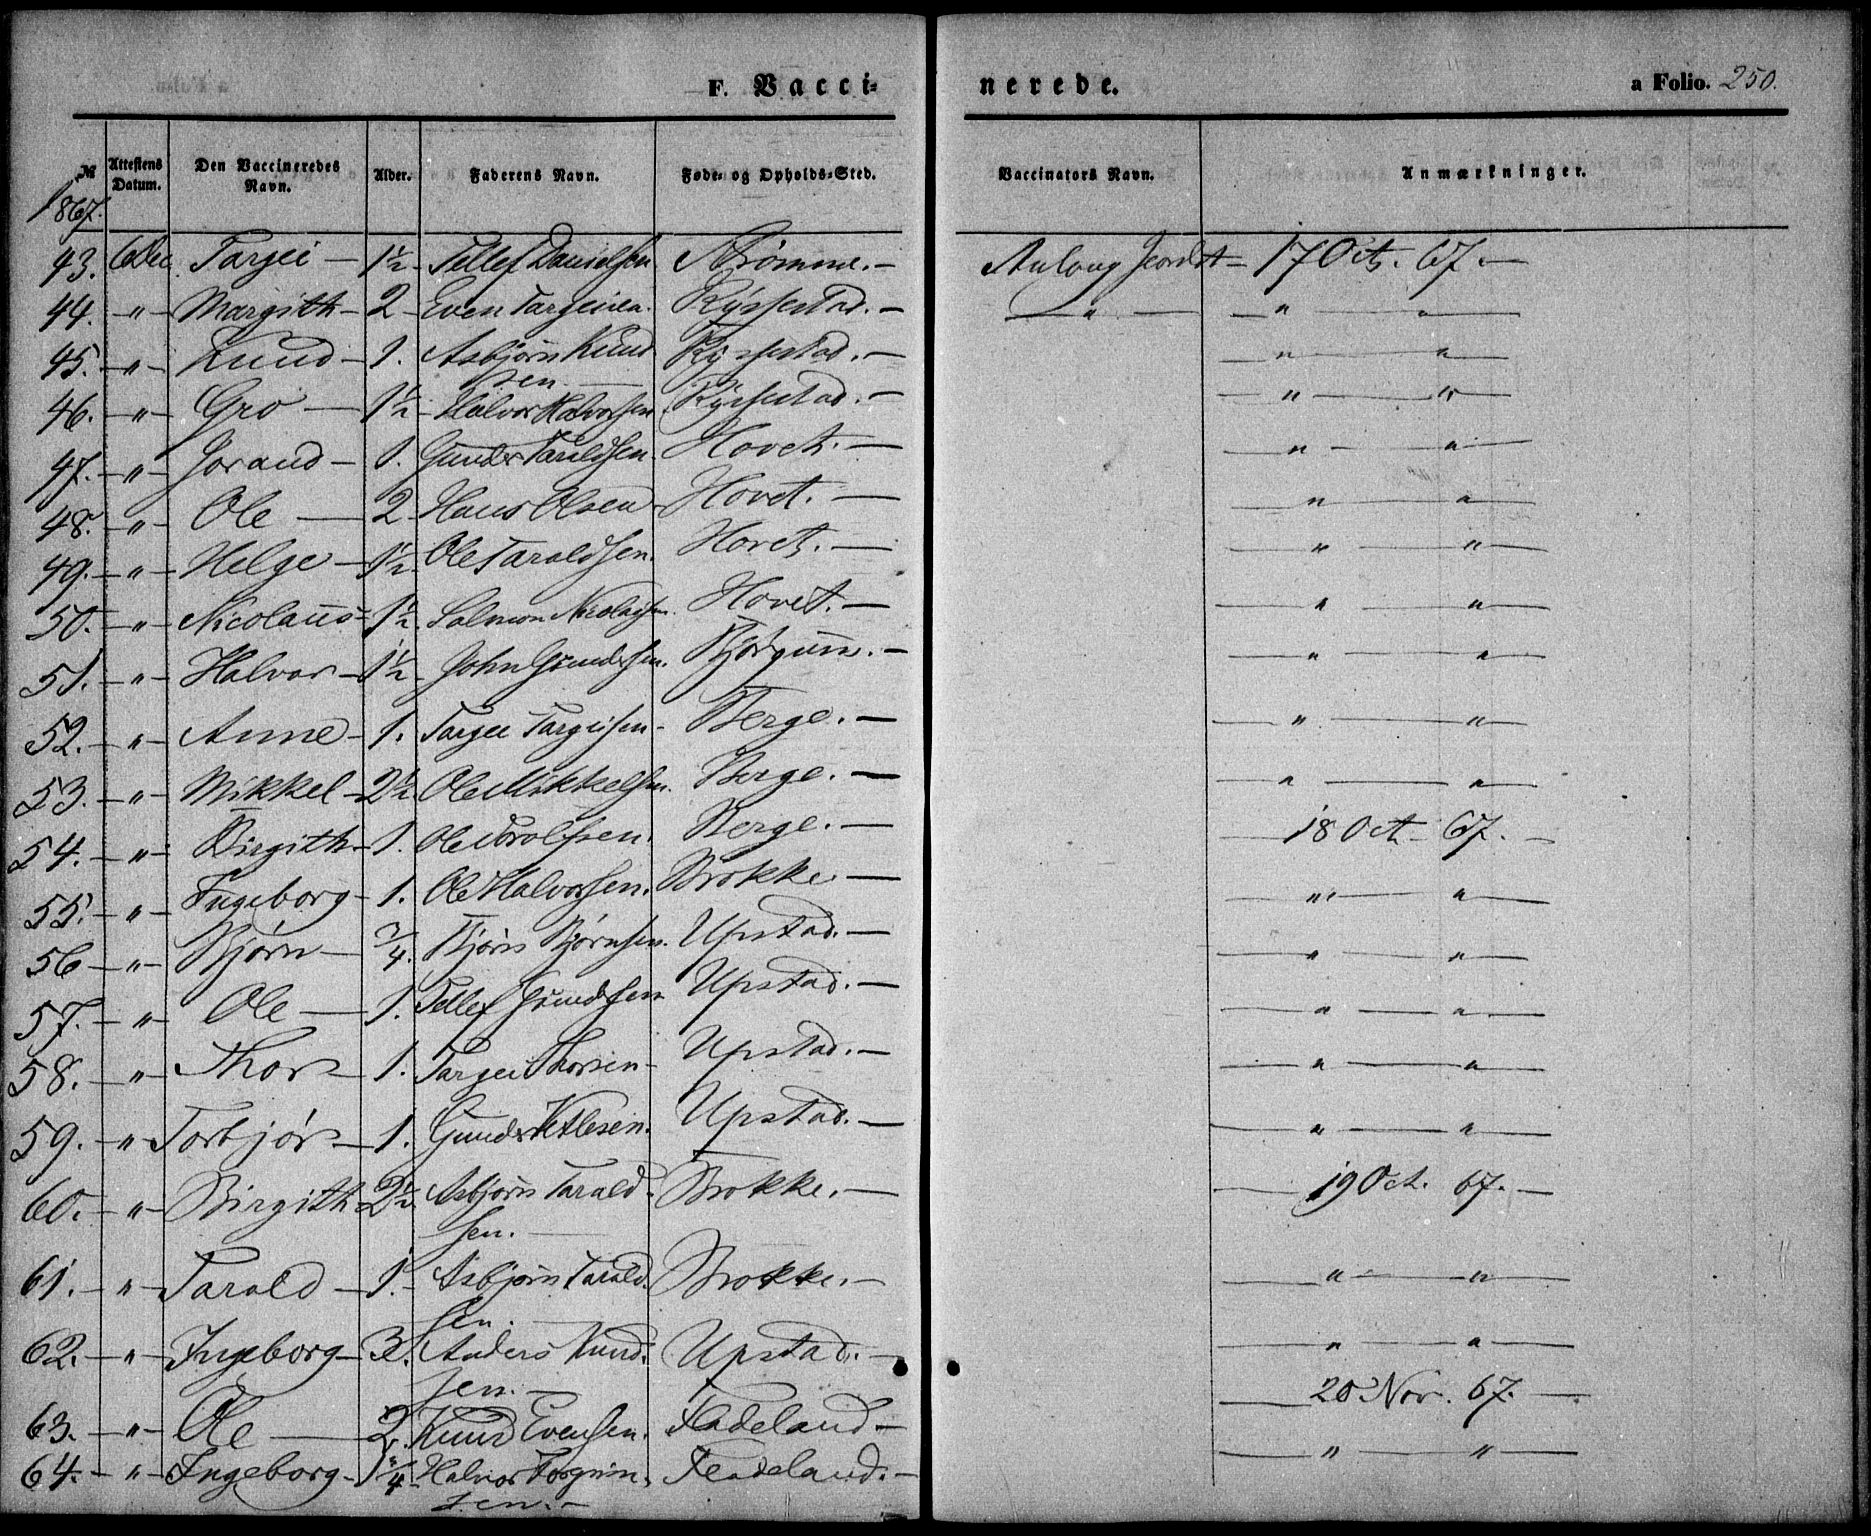 F. Vacci-
nerede.
a Folio. 250.
№ Attestens Datum. Den Vaccineredes Navn. Alder. Faderens Navn. Føde- og Opholds-Sted. Vaccinators Navn. Anmærkninger.
1867.
43. 6 Dec Targei — 1½ Tellef Danielsen Strømme. — 17 Oct. 67. —
44. — " — Margith — 2 — Even Targeisen. Ryssestad. — — " — — " — " —
45. — " — Knud — 1. Asbjørn Knud Ryssestad. — — " — " —
sen. —
46. — " — Gro — 1½ — Halvor Halvorsen Ryssestad. — — " — " —
47. — " — Jorand — 1. Gunder Taraldsen Hovet. — — " — " —
48. — " — Ole — 2 Hans Olsen — Hovet. — — " — " —
49. — " — Helge — 1½ Ole Taraldsen. Hovet. — — " — " —
50. — " — Nicolaus — 1½. Salmon Nicolaisen. Hovet. — — " — " —
51. — " — Halvor — 1½ — John Gundersen. Bjørgum. — — " — " —
52. — " — Anne — 1. Targei Targeisen — Berge. — — " — " —
53. — " — Mikkel — 2½. Ole Mikkelsen. Berge. — — " — " —
54. — " — Birgith — 1. Ole Torolfsen. Berge. — — 18 Oct — 67. —
55. — " — Ingeborg — 1. Ole Halvorsen. Brokke — — " — " —
56 — " — Bjørn — ¾. Bjørn Bjørnsen. Upstad. — — " — " —
57. — " — Ole — 1. Tellef Gundersen Upstad. — — " — " —
58. — " — Thor — 1. Targei Thorsen — Upstad. — — " — " —
59. — " — Torbjør — 1. Gunder Ketlesen. Upstad. — — " — " —
60. — " — Birgith 2½. Asbjørn Tarald- Brokke. — — 19 Oct. 67. —
sen. —
61. — " — Tarald — 1. — Asbjørn Tarald- Brokke. — — " — " —
sen. —
62. — " — Ingeborg — 3. Anders Knud- Upstad. — — " — " —
sen. —
— 20 Nov. 67. —
63. — " — Ole — 2. Knud Evensen. Fladeland —
64. — " — Ingeborg — Halvor Torgrim- Fladeland. — — " — " —
sen. —